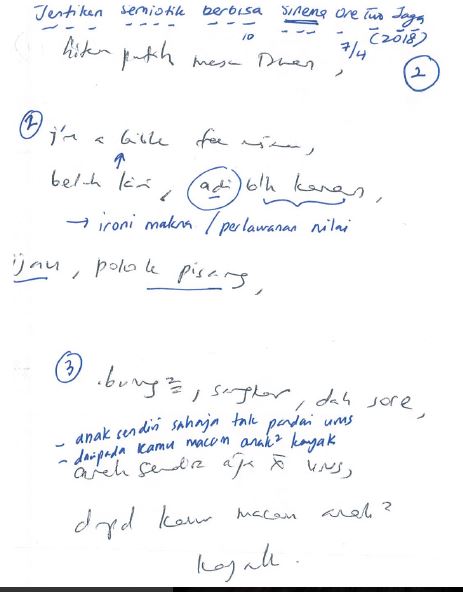 Jentikan semiotik berbisa sinema One Two Jaga
(2018)
10
7/4
hitam putih mesa
2
2 i'm a little
belah kiri, adi blh kanan,
→ ironi makna / perlawanan nilai
ijau, pokok pisang,
3
burung², sangkar, dah sore,
- anak sendiri sahaja tak pandai urus
- daripada kamu macam anak² kayak
anak sendiri aja x urus,
drpd kamu macam anak²
kayak.